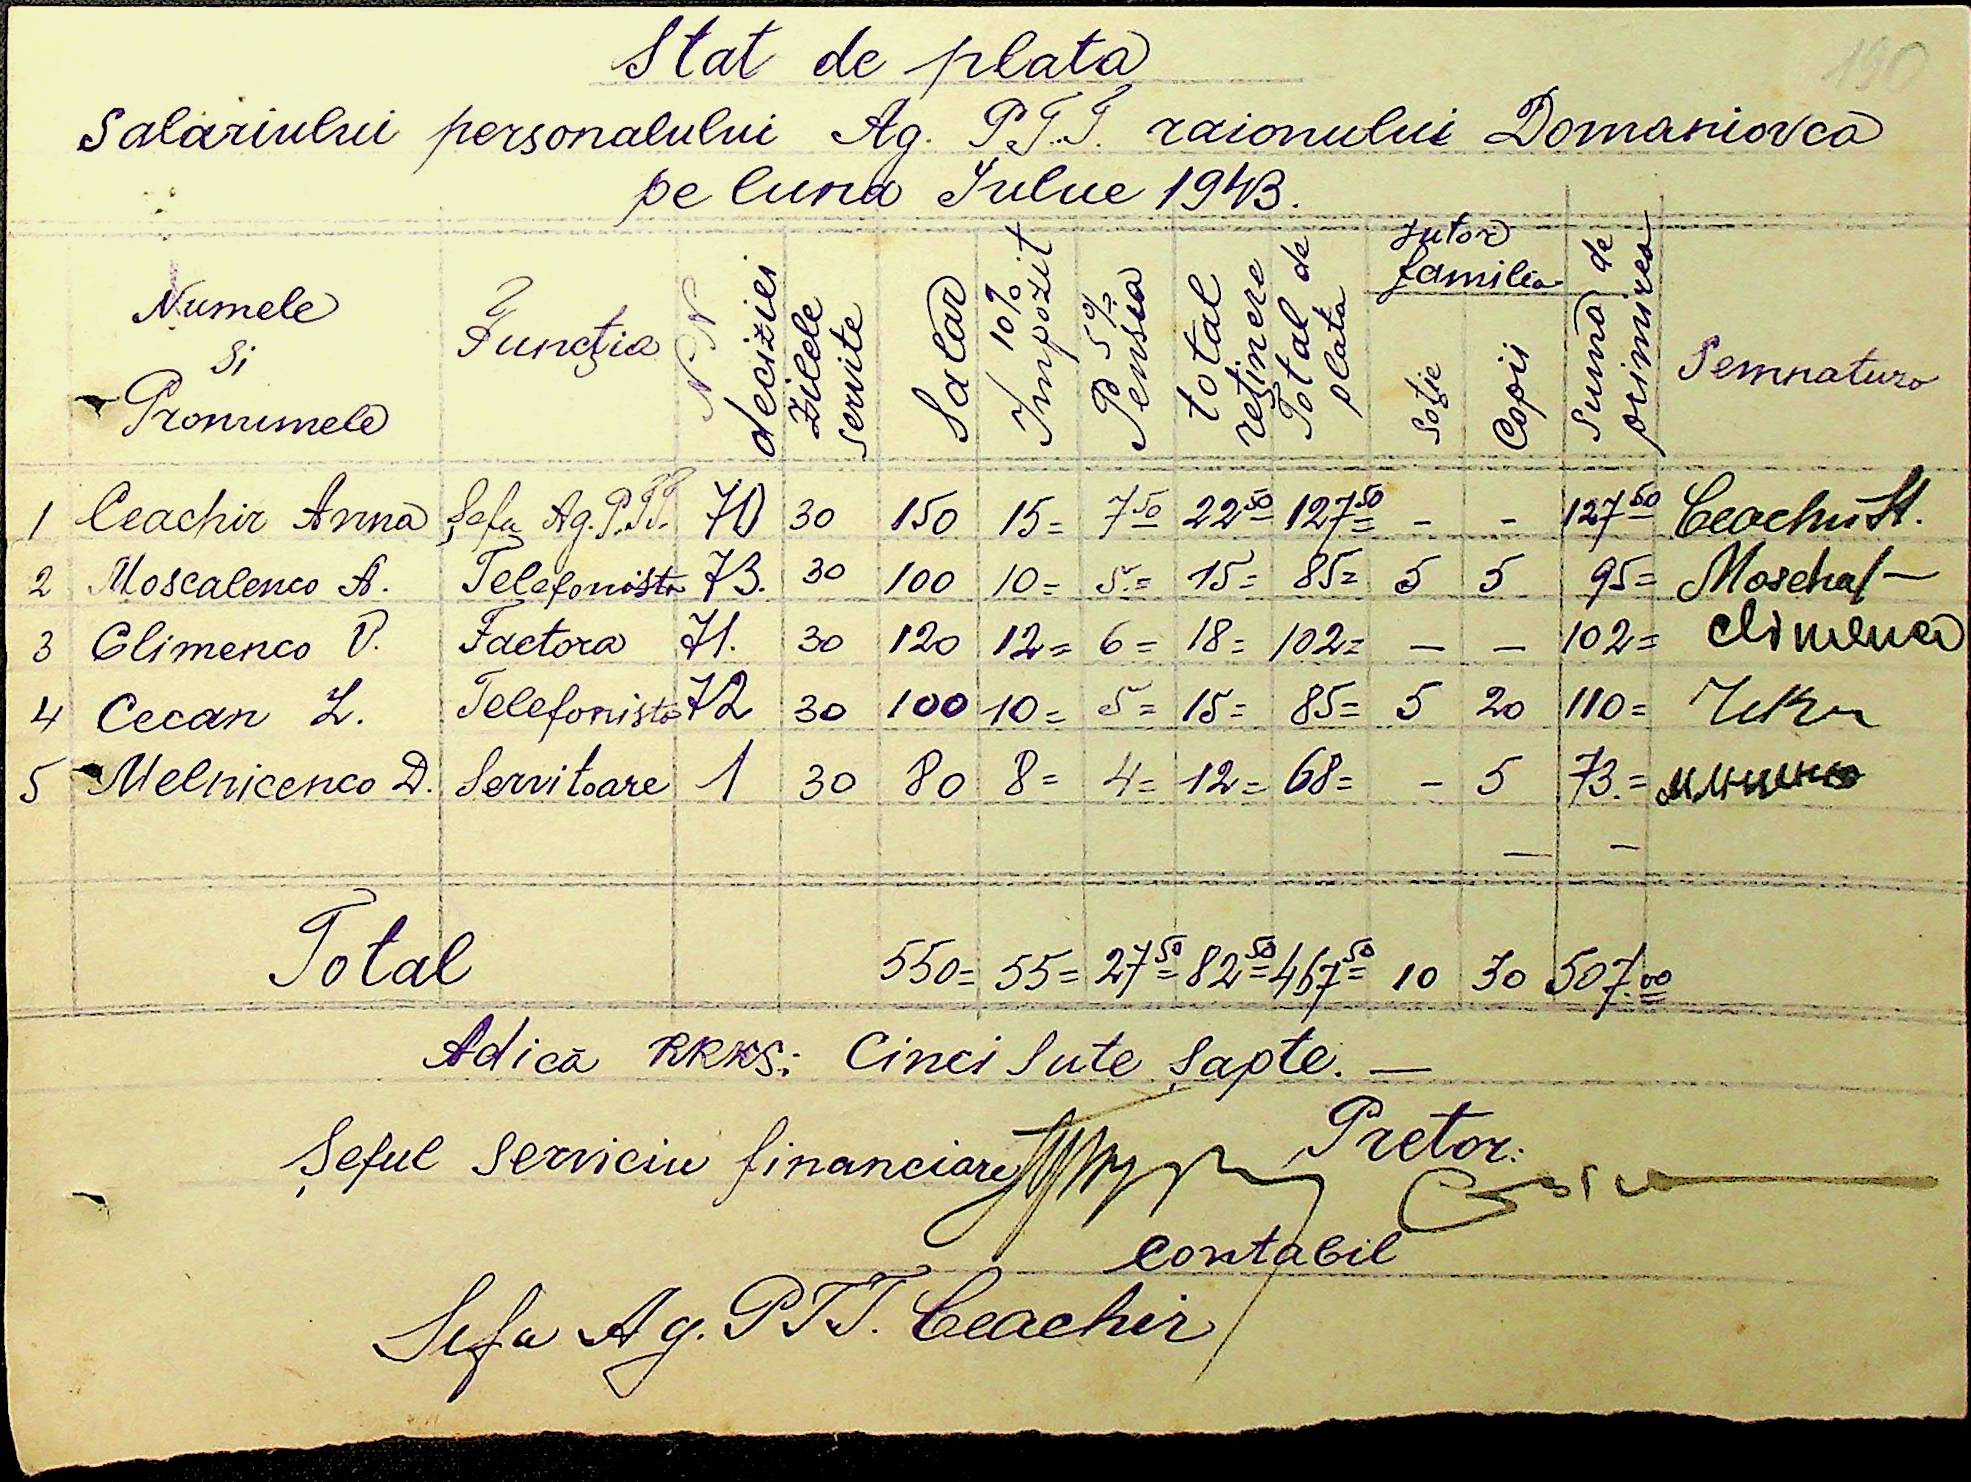 190
Stat de plata
Salariului personalului Ag. P.T.T. raionului Domaniovca
pe luna Iulue 1943.
Numele și Pronumele | Funcția | NN deciziei | Zilele servite | Salar | 10% Impozit | 5% Pensia | total reținere | Total de plata | Jutor familia: Soție | Copii | Suma de primirea | Semnatura
1 Ceachir Anna Șefa Ag. P.T.T. 70 30 150 15= 7 50 22 50 127 50 - - 127 50 Ceachir
2 Moscalenco A. Telefonista 73. 30 100 10= 5.= 15= 85= 5 5 95= Moschal-
3 Climenco V. Factora 71. 30 120 12= 6= 18= 102= - - 102= Climenco
4 Cecan L. Telefonista 72 30 100 10= 5= 15= 85= 5 20 110=
5 Melnicenco D. Servitoare 1 30 80 8= 4= 12= 68= - 5 73.=
— —
Total 550= 55= 27 50 82 50 467 50 10 30 507.00
Adică RKKS: Cinci Sute șapte. —
Șeful Serviciu financiare Pretor:
contabil
Sefa Ag. PTT. Ceachir